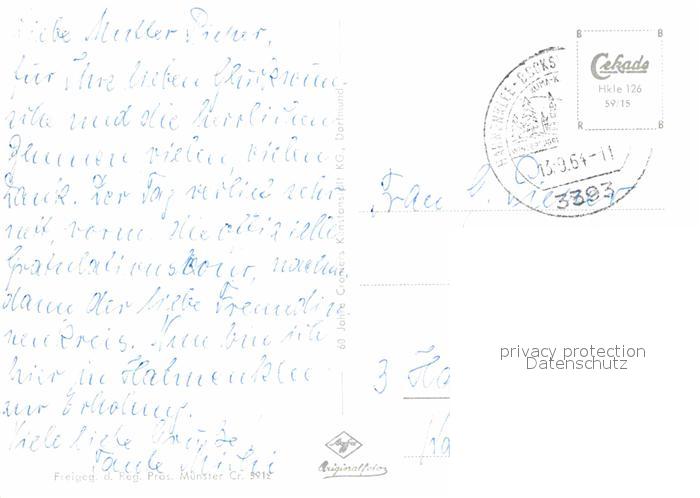 Liebe Mutter Picher,
für Ihre lieben Glückwün-
sche und die herrlichen
Blumen vielen, vielen
Dank. Der Tag verlief sehr
nett, vorm. die offizielle
Gratulationskour, nachm.
dann der liebe Freundin-
nenkreis. Nun bin ich
hier in Hahnenklee
zur Erholung.
Viele liebe Grüße,
Tante
Freigeg. d. Reg. Präs. Münster Cr. 5912
60 Jahre Cramers Kunstanstalt KG., Dortmund
Agfa
Originalfoto
HAHNENKLEE-BOCKS
13.9.64-11
3393
B B
Cekade
Hkle 126
59/15
R B
Frau
3 Ha
privacy protection
Datenschutz